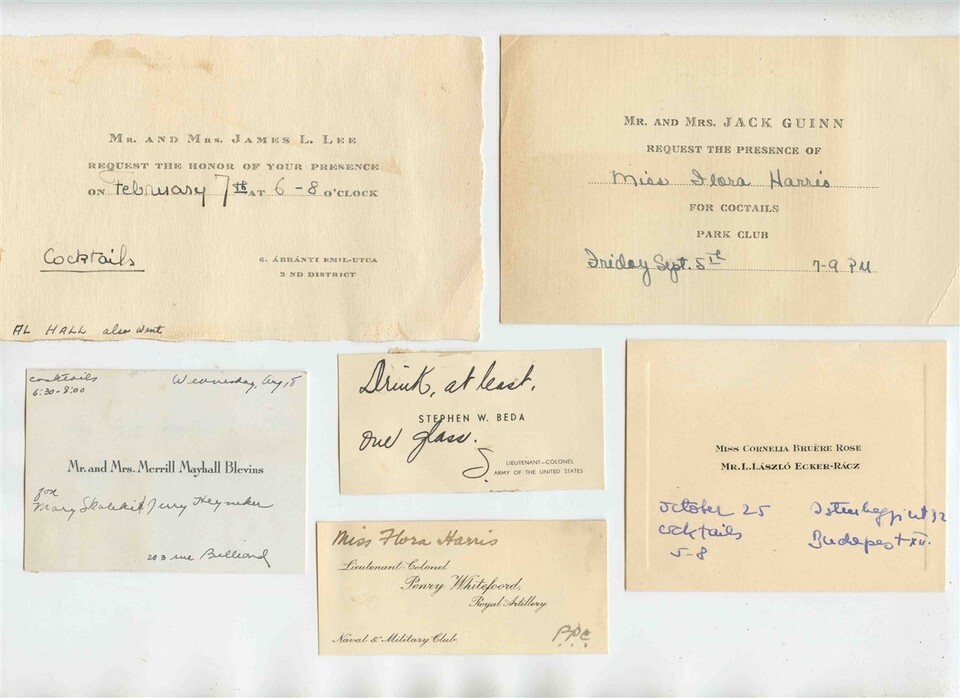 MR. AND MRS. JAMES L. LEE
REQUEST THE HONOR OF YOUR PRESENCE
ON February 7th AT 6 - 8 O'CLOCK
Cocktails
6. ÁBRÁNYI EMIL-UTCA
2 ND DISTRICT
AL HALL also went
MR. AND MRS. JACK GUINN
REQUEST THE PRESENCE OF
Miss Flora Harris
FOR COCTAILS
PARK CLUB
Friday Sept. 5th 7-9 PM
cocktails Wednesday, Aug 18
6:30-8:00
Mr. and Mrs. Merrill Mayhall Blevins
for
Mary Jerry Heyneker
203 rue Belliard
Drink, at least,
STEPHEN W. BEDA
one glass.
LIEUTENANT-COLONEL
ARMY OF THE UNITED STATES
Miss Flora Harris
Lieutenant-Colonel
Penry Whitefoord,
Royal Artillery
Naval & Military Club.
P.P.C.
MISS CORNELIA BRUÈRE ROSE
MR. L. LÁSZLÓ ECKER-RÁCZ
October 25
cocktails
5-8
Istenhegyi ut 92
Budapest XII.